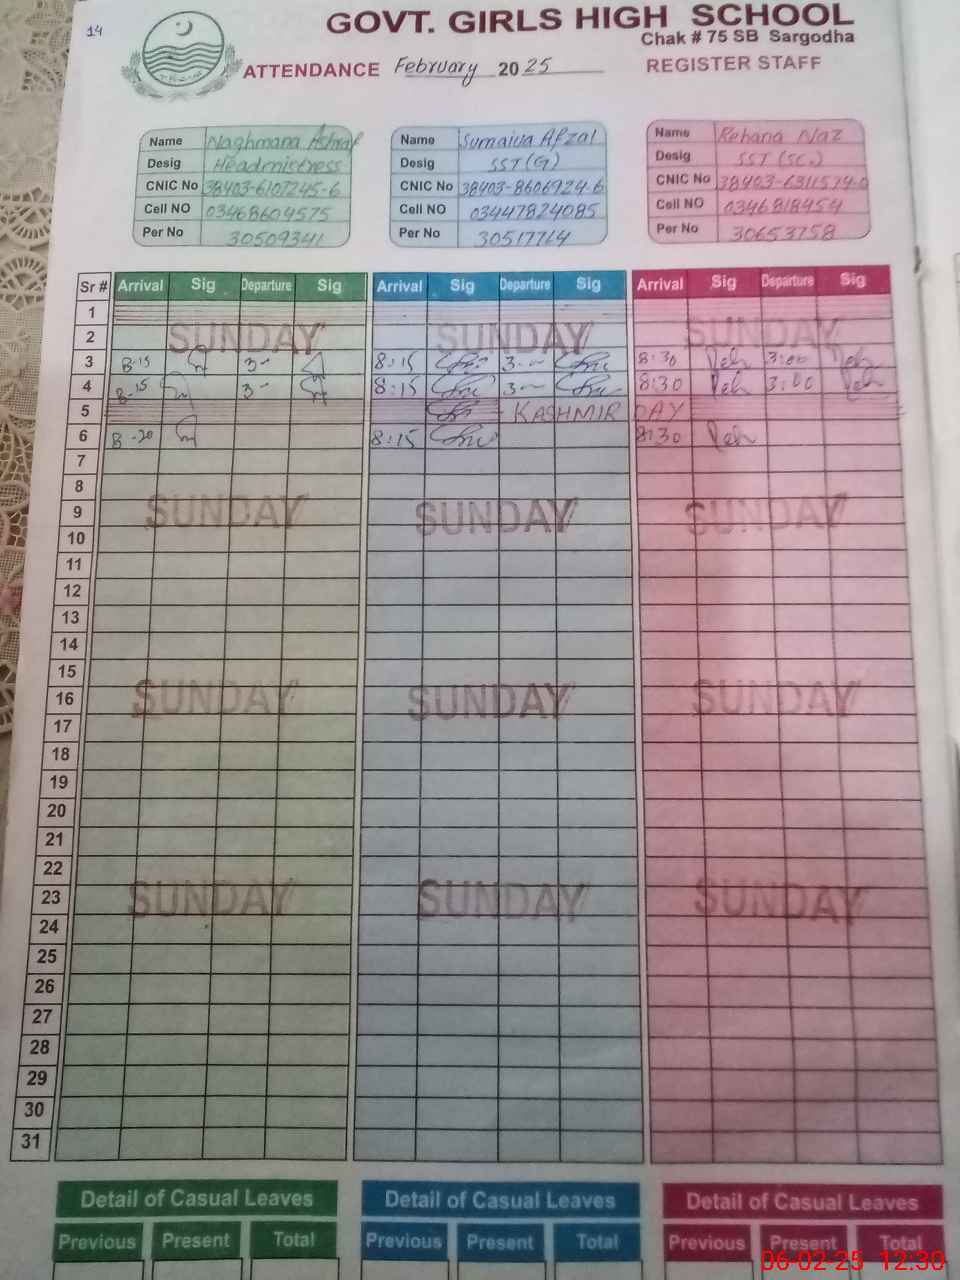 14
GOVT. GIRLS HIGH SCHOOL
Chak # 75 SB Sargodha
ATTENDANCE February 2025 REGISTER STAFF
Name Naghmana Ashraf Name Sumaiya Afzal Name Rehana Naz
Desig Headmistress Desig SST (G) Desig SST (SC.)
CNIC No 38403-6107245-6 CNIC No 38403-8606924-6 CNIC No 38403-6311574-0
Cell NO 03468604575 Cell NO 03447824085 Cell NO 0346818454
Per No 30509341 Per No 30517714 Per No 30653758
Sr # Arrival Sig Departure Sig Arrival Sig Departure Sig Arrival Sig Departure Sig
1
2 SUNDAY SUNDAY SUNDAY
3 8-15 3- 8:15 3- 8:30 Reh 3:00 Reh
4 8-15 3- 8:15 3- 8:30 Reh 3:00 Reh
5 - KASHMIR DAY
6 8-20 8:15 8:30 Reh
7
8
9 SUNDAY SUNDAY SUNDAY
10
11
12
13
14
15
16 SUNDAY SUNDAY SUNDAY
17
18
19
20
21
22
23 SUNDAY SUNDAY SUNDAY
24
25
26
27
28
29
30
31
Detail of Casual Leaves Detail of Casual Leaves Detail of Casual Leaves
Previous Present Total Previous Present Total Previous Present Total
06-02-25 12:30